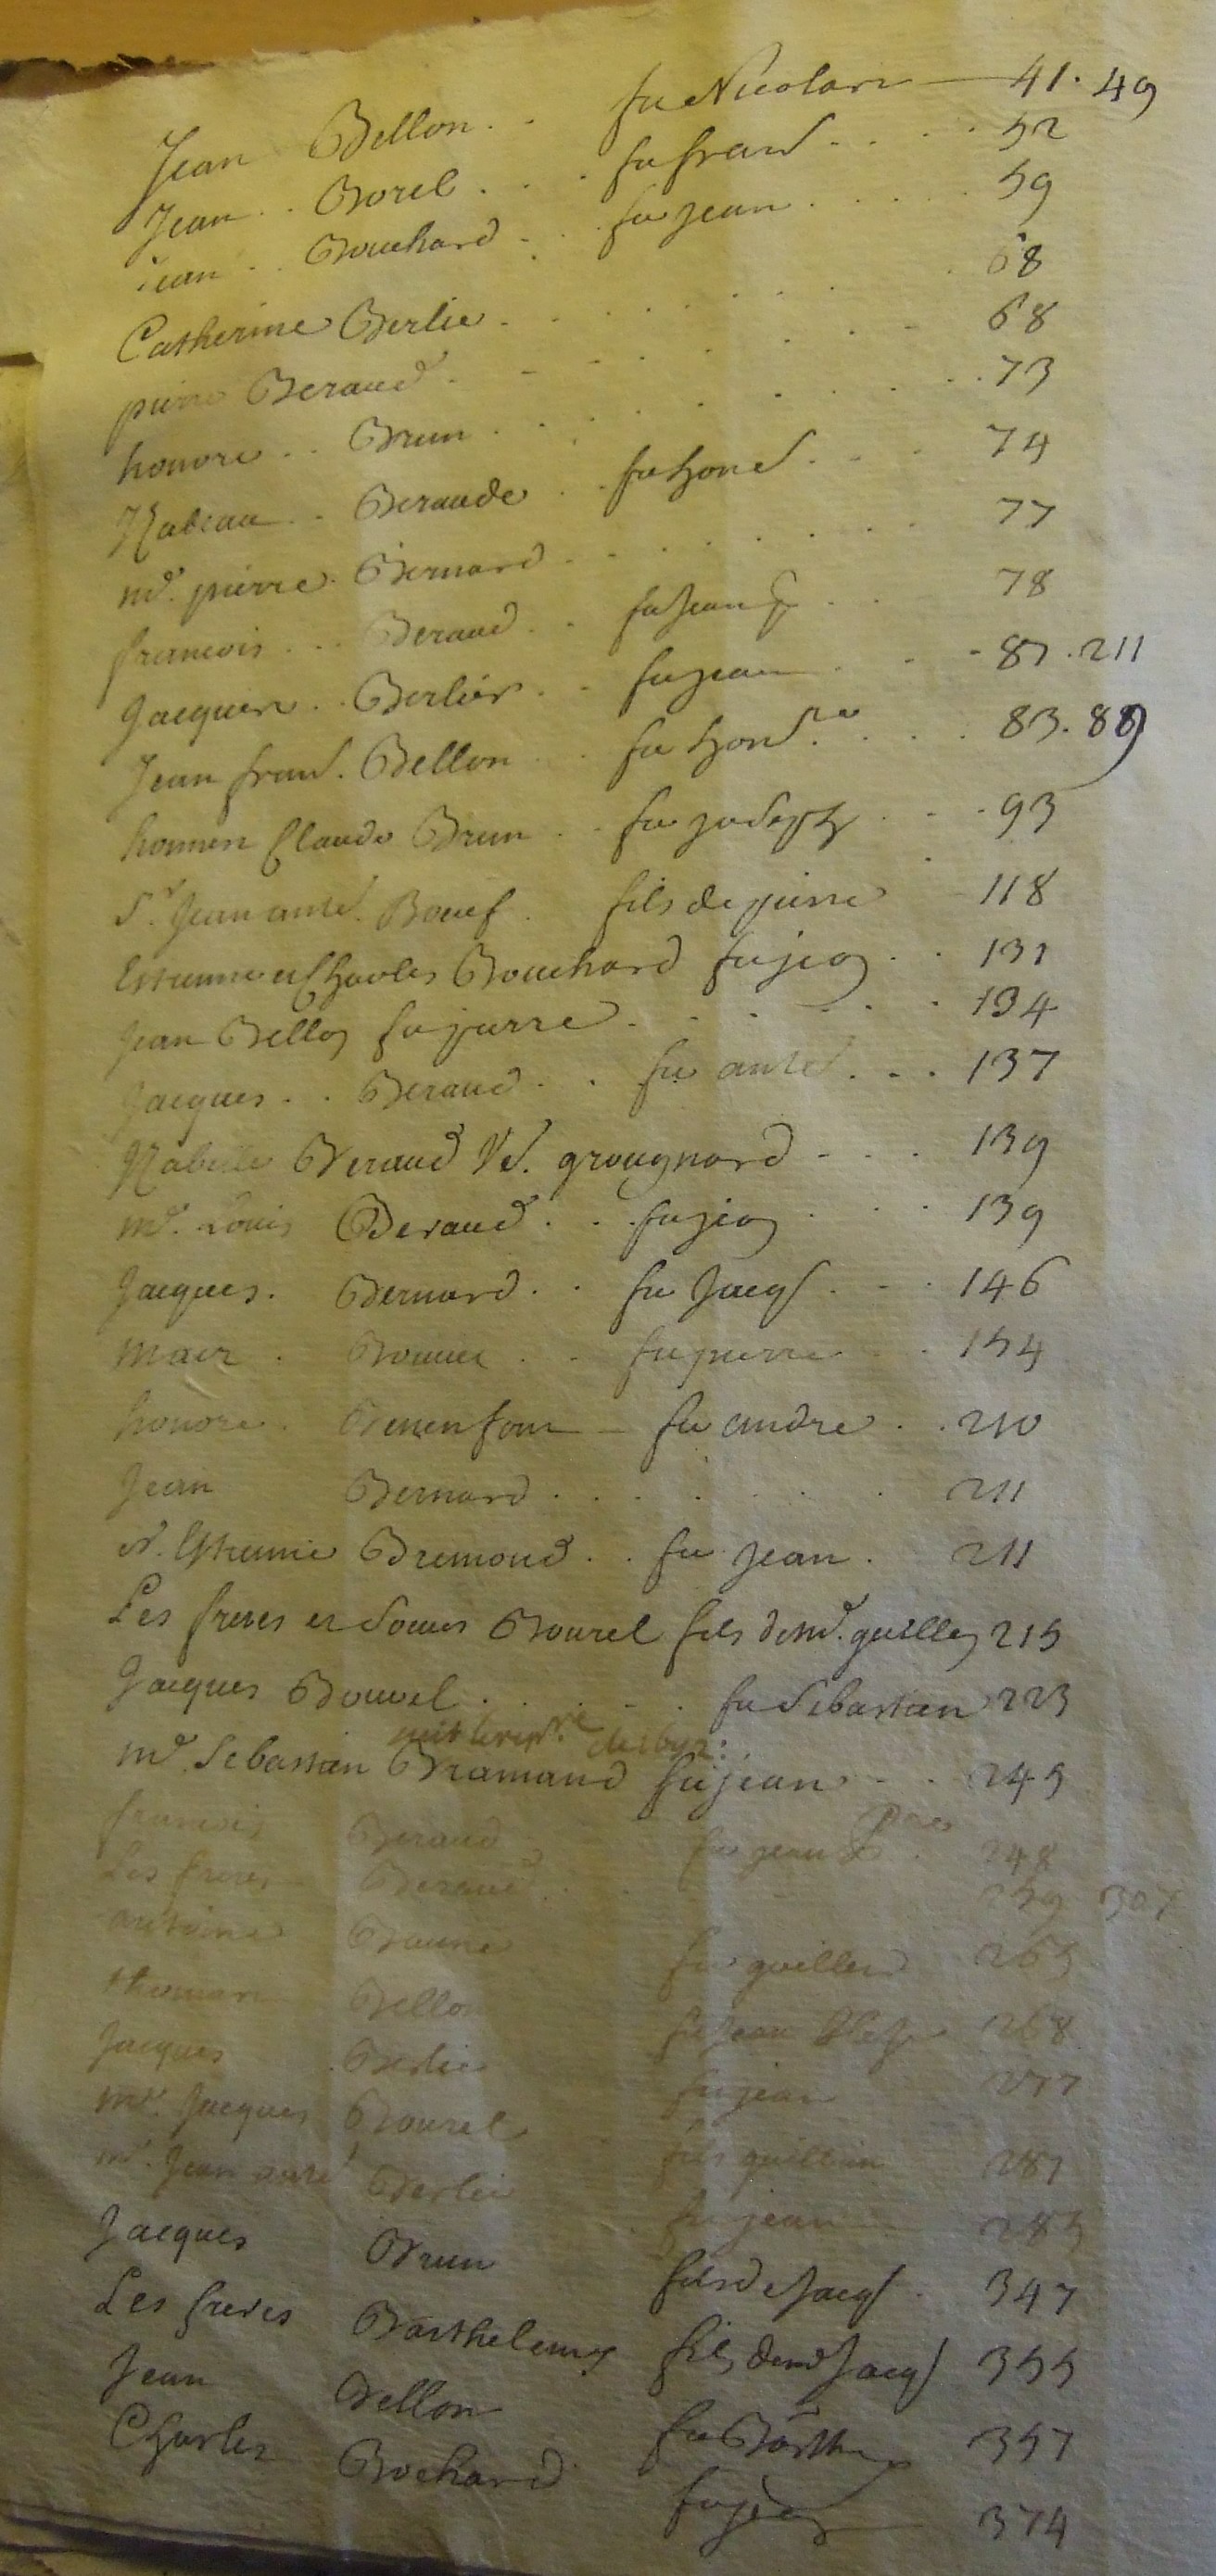 Jean Bellon . . fu Nicolas 41. 49
Jean . . Borel . . . fu frans . . . 52
Jean . . Bouchard . . . fu jean . . . . 59
Catherine Berlie . . . . . . . 68
pierre Beraud . . . . . . 68
honore . . Brun . . . . . . . 73
Isabeau . . Beraude . . fu honé . . . 74
me. pierre . Bernard . . . . . . 77
francois . . . Beraud . . fu Jean . . 78
Jacques . . Berlier . . fu jean . . - 87 . 211
Jean frans. Bellon . . fu honé. . . . 83. 89
Claude Brun . . fu joseph . . . 93
Sr. Jean ante. Boeuf . fils de pierre 118
Estienne et Charles Bouchard fu jean . . 131
Jean Bellon fu pierre . . . . . . 134
Jacques . . Beraud . . fu ante . . . 137
Beraud Ve. grougnard - . . 139
me. Louis Beraud . . . fu jean . . . 139
Jacques . Bernard . . fu Jacqs . - . 146
Marc . . . fu pierre . . 154
honore . fu andre . . 210
Jean Bernard . . . . . . 211
Estienne Bremond . . fu jean . 211
Les freres et soeurs Bourel fils de me. guillen 215
Jacques Bouvel . . . - . fu Sebastian 223
me. Sebastian Bramand fu jean . . 245
francois Beraud fu jean . 248
Les freres Beraud . . 259 307
antoine Baune fu guillen 265
thomas Bellon fu jean 268
Jacques Berlie fu jean 277
me. Jacques Bourel fils guillen 281
me. Jean ante Berlie fu jean 285
Jacques Brun fils de Jacqs . 347
Les freres Barthelemy fils de me Jacqs 355
Jean Bellon fu Barth 357
Charles Bochard fu jean 374